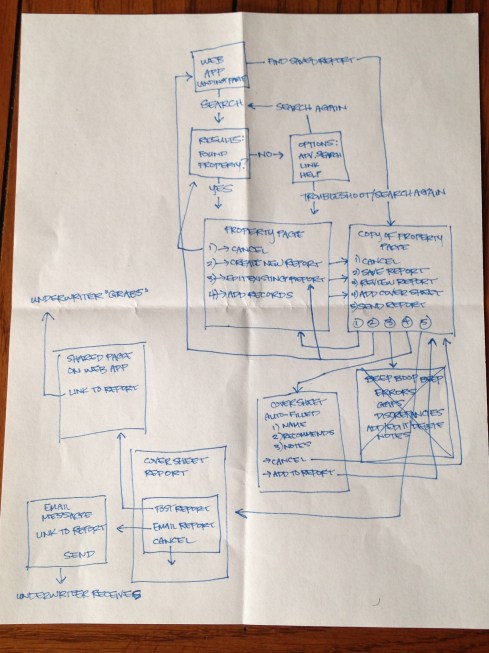 WEB
APP
LANDING PAGE
FIND SAVED REPORT
SEARCH
SEARCH AGAIN
RESULTS:
FOUND
PROPERTY?
NO
OPTIONS:
ADV. SEARCH
LINK
HELP
YES
TROUBLESHOOT/SEARCH AGAIN
PROPERTY PAGE
1) CANCEL
2) CREATE NEW REPORT
3) EDIT EXISTING REPORT
4) ADD RECORDS
COPY OF PROPERTY
PAGE
1) CANCEL
2) SAVE REPORT
3) REVIEW REPORT
4) ADD COVER SHEET
5) SEND REPORT
1 2 3 4 5
UNDERWRITER "GRABS"
SHARED PAGE
ON WEB APP
LINK TO REPORT
COVER SHEET
AUTO-FILLED
1) NAME
2) RECOMMENDS
3) NOTES
CANCEL
ADD TO REPORT
BEEP BOOP BEEP
ERRORS
GAPS
DISCREPANCIES
ADD/EDIT/DELETE
NOTES
COVER SHEET
REPORT
POST REPORT
EMAIL REPORT
CANCEL
EMAIL
MESSAGE
LINK TO REPORT
SEND
UNDERWRITER RECEIVES